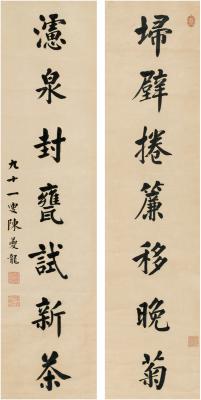 埽壁捲簾移晚菊
濾泉封甕試新茶
九十一叟陳夔龍